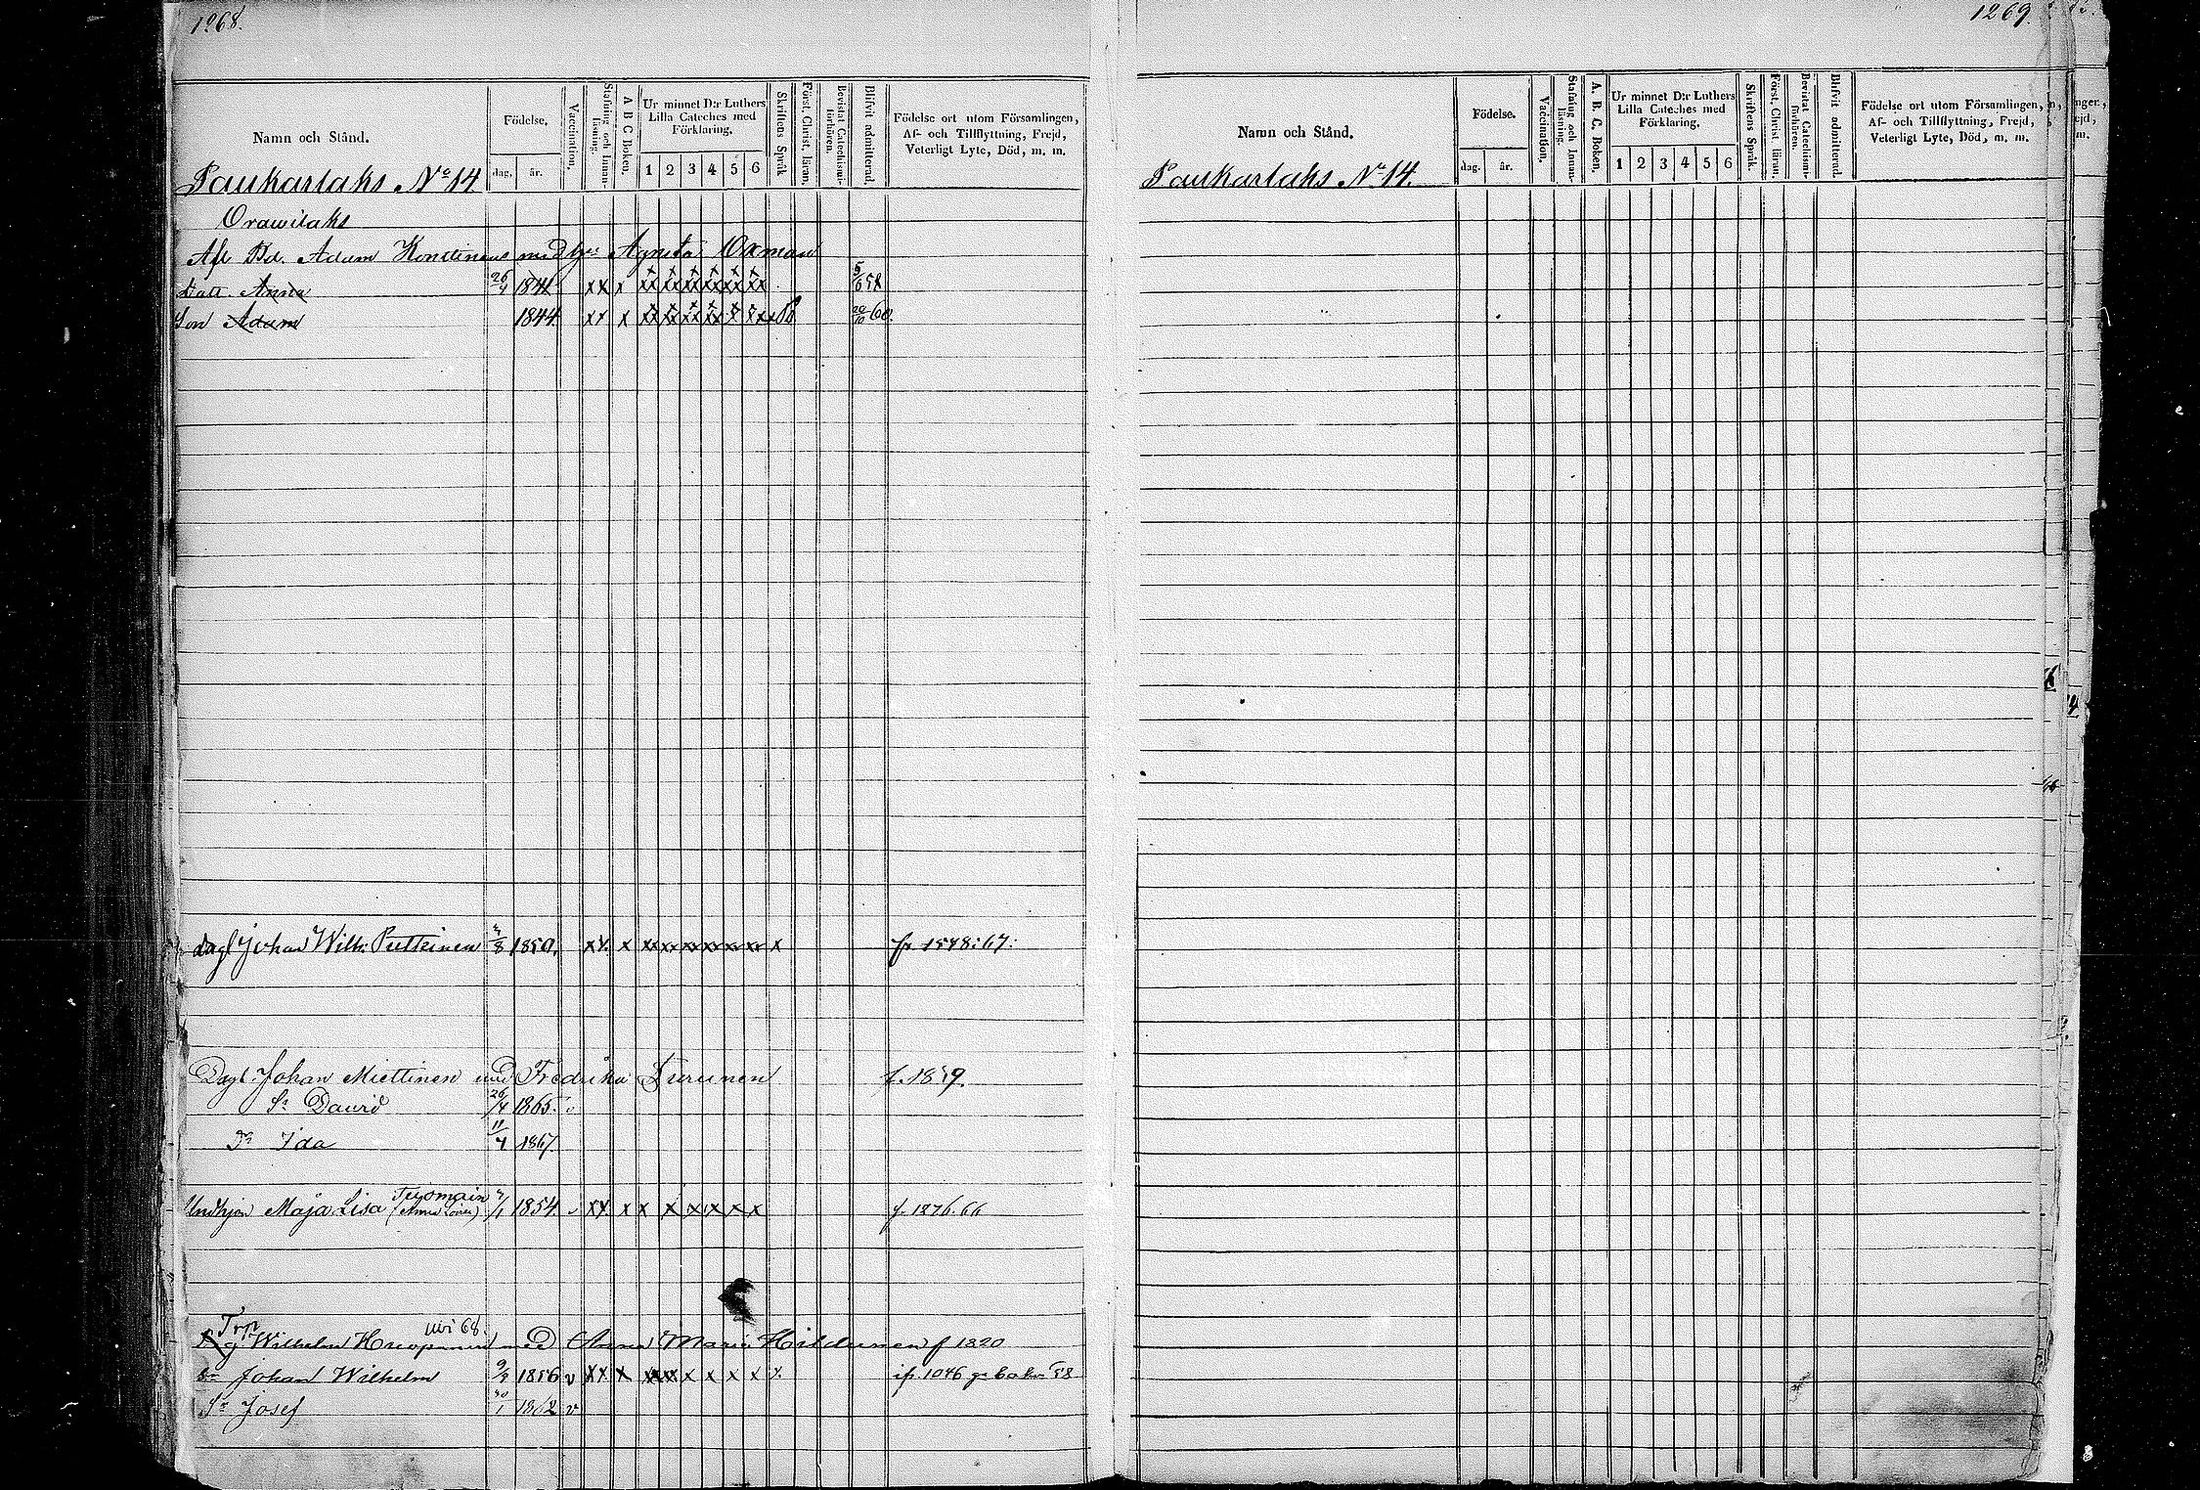 1268.
Namn och Stånd.
Födelse.
dag.
år.
Vaccination.
Stafning och Innan-läsning.
A B C Boken.
Ur minnet D:r Luthers
Lilla Cateches med
Förklaring.
1 2 3 4 5 6
Skriftens Språk
Först. Christ. läran.
Bevistat Catechismi-förhören.
Blifvit admitterad.
Födelse ort utom Församlingen,
Af- och Tillflyttning, Frejd,
Veterligt Lyte, Död, m. m.
Paukarlaks No 14
Orawilaks
Afl Bd. Adam Konttinens med hu Agneta Oxman
Datt. Anna 26/4 1841 xx x xx xx xx xx xx xx 58
Son Adam 1844 xx x 20/10 60.
dagl Johan Wilh. Putteinen 1850. xx. x xx xx xx xx xx xx x fr. 1548:67:
Dagl. Johan Miettinen med Fredrika Turunen f. 1859.
Sn David 26/4 1865
Dr Ida 11/4 1867.
Maja Lisa 1854 xx. x x x x x x x f. 1276.66
Trp
68.
Wilhelm med Anna Maria Hildunen f 1820
Sn Johan Wilhelm 9/9 1856 v xx x xx xx x x x x x. ifr. 1046 58
Sn Josef 30/1 1862 v
1269
Namn och Stånd.
Födelse.
dag.
år.
Vaccination.
Stafning och Innan-läsning.
A. B. C. Boken.
Ur minnet D:r Luthers
Lilla Cateches med
Förklaring.
1 2 3 4 5 6
Skriftens Språk.
Först. Christ. läran.
Bevistat Catechismi-förhören.
Blifvit admitterad.
Födelse ort utom Församlingen,
Af- och Tillflyttning, Frejd,
Veterligt Lyte, Död, m. m.
Paukarlaks No 14.